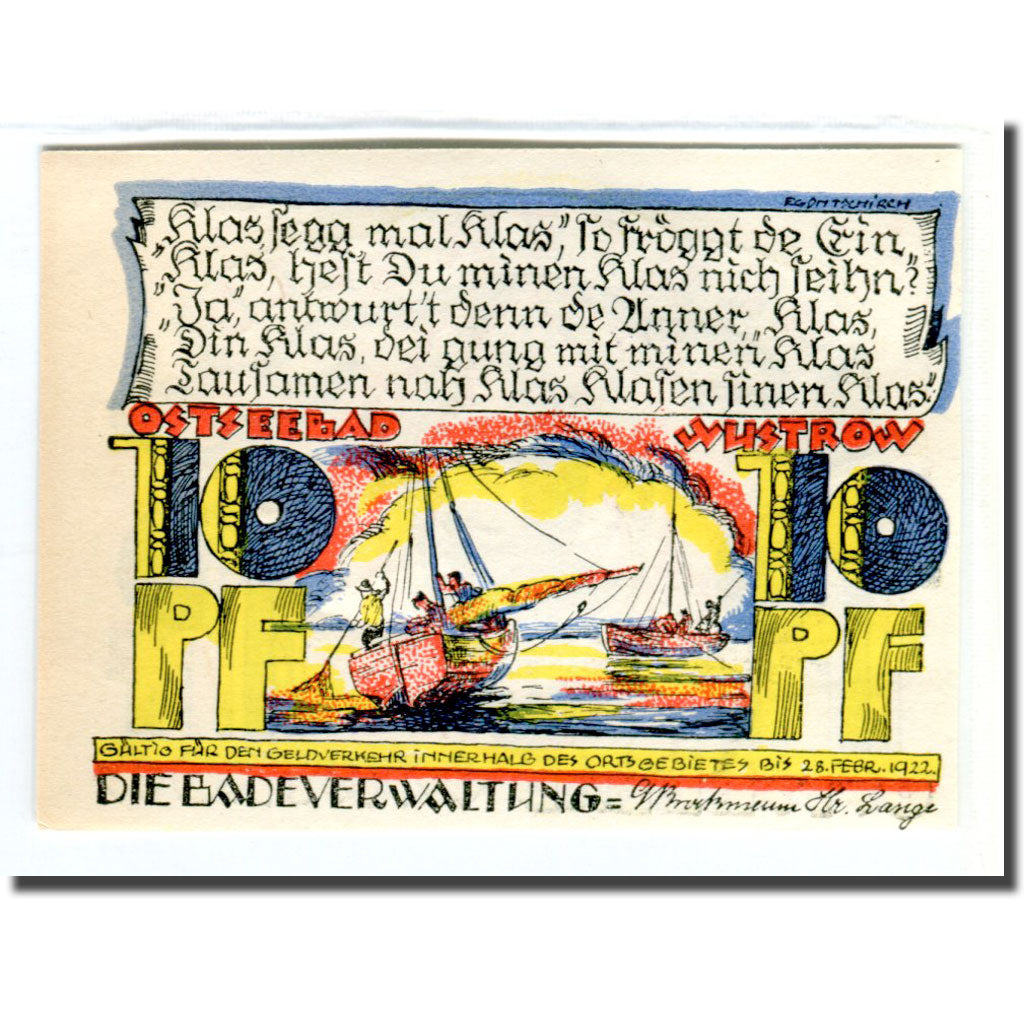 EGON TSCHIRCH
„Klas, segg mal Klas,“ so fröggt de Ein,
„Klas, hest Du minen Klas nich seihn?“
„Ja,“ antwurt't denn de Anner, „Klas,
Din Klas, dei gung mit minen Klas
Tausamen nah Klas Klasen sinen Klas.“
OSTSEEBAD WUSTROW
10 10
PF PF
GÜLTIG FÜR DEN GELDVERKEHR INNERHALB DES ORTSGEBIETES BIS 28. FEBR. 1922.
DIE BADEVERWALTUNG = Hr. Lange